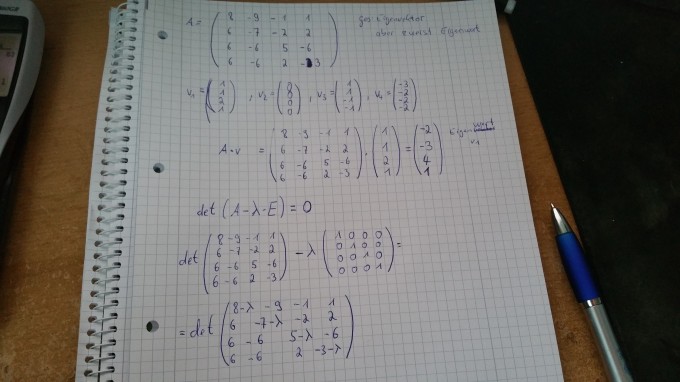 A = ( 8 -9 -1 1
6 -7 -2 2
6 -6 5 -6
6 -6 2 -3 )
ges: Eigenvektor
aber zuerst Eigenwert
v₁ = ( 1 1 2 1 ) , v₂ = ( 0 ) , v₃ = ( 1 1 -1 -1 ) , v₄ = ( -3 -2 -2 -2 )
A · v = ( 8 -9 -1 1
6 -7 -2 2
6 -6 5 -6
6 -6 2 -3 ) · ( 1 1 2 1 ) = ( -2 -3 4 1 )
v₁
det (A - λ · E) = 0
det ( 8 -9 -1 1
6 -7 -2 2
6 -6 5 -6
6 -6 2 -3 ) - λ ( 1 0 0 0
0 1 0 0
0 0 1 0
0 0 0 1 ) =
= det ( 8-λ -9 -1 1
6 -7-λ -2 2
6 -6 5-λ -6
6 -6 2 -3-λ )